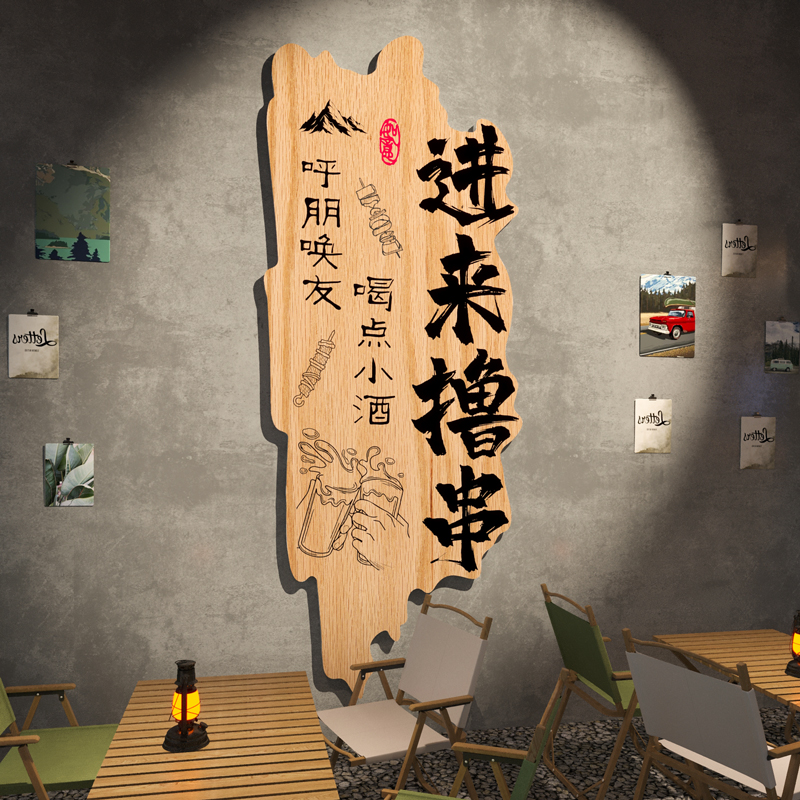 进来撸串
喝点小酒
呼朋唤友
如意
Letters
Letters
Letters
Letters